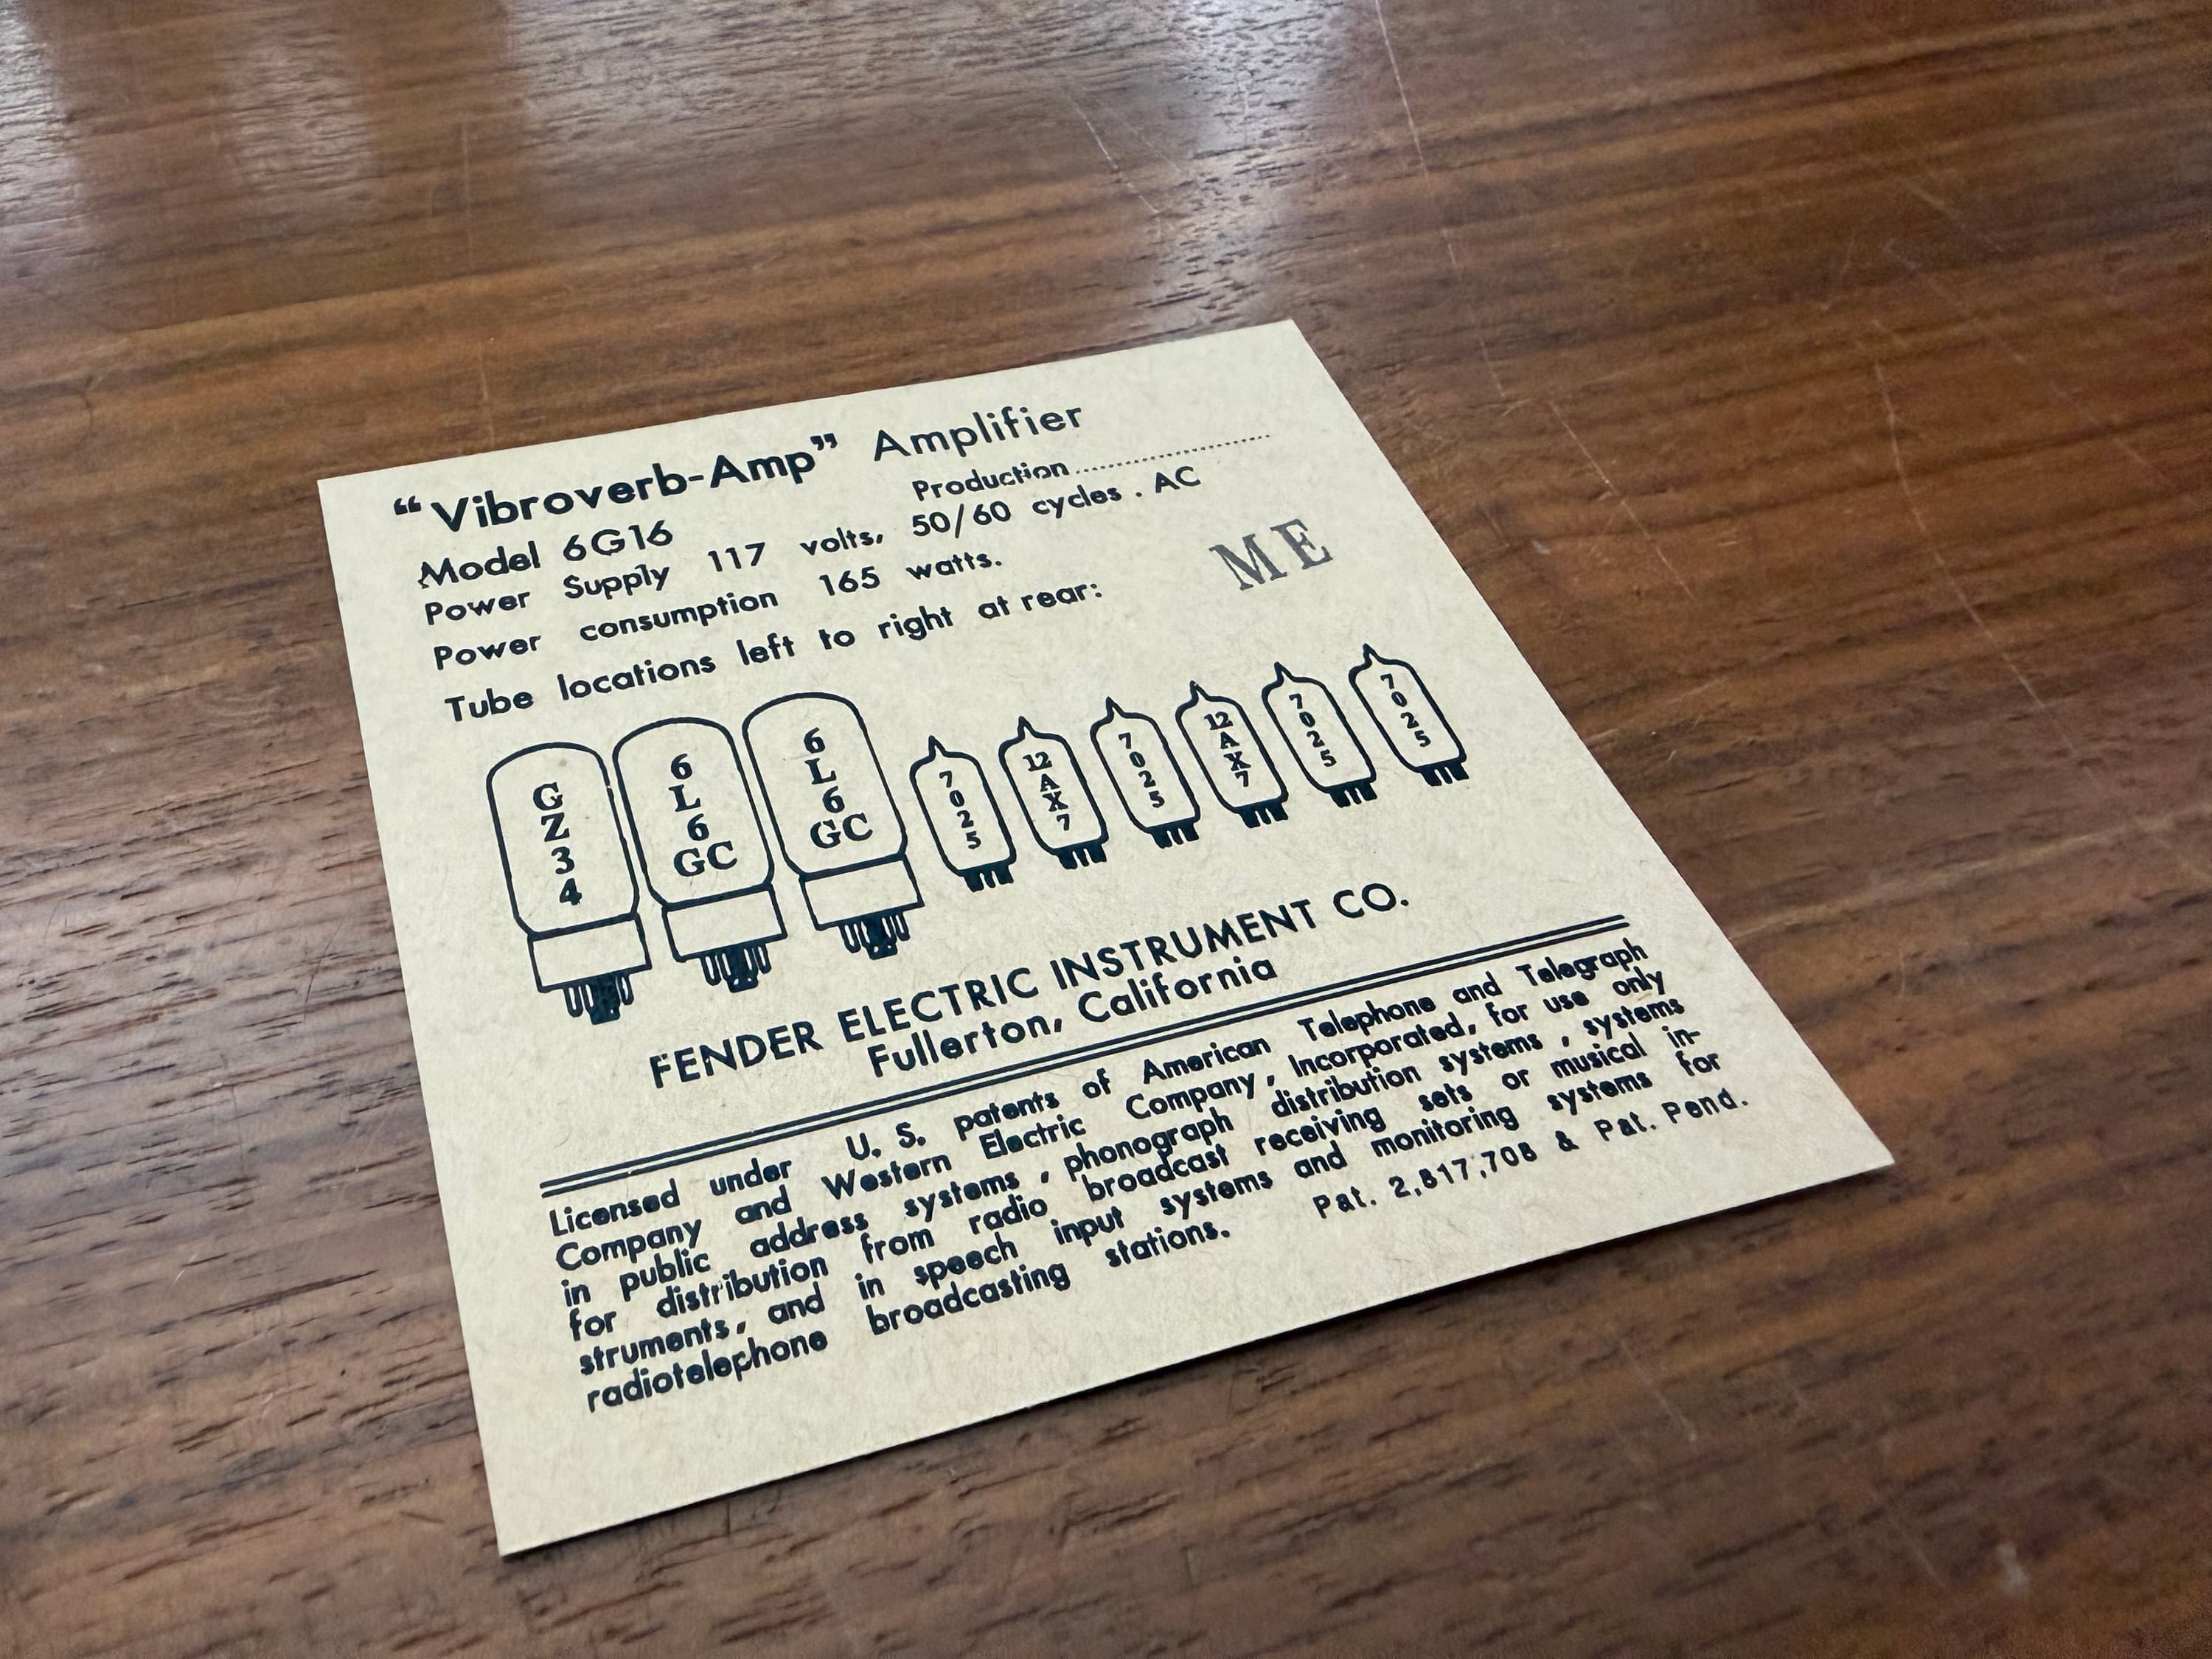 “Vibroverb-Amp” Amplifier
Model 6G16 Production
Power Supply 117 volts, 50/60 cycles . AC
Power consumption 165 watts.
ME
Tube locations left to right at rear:
GZ34 6L6GC 6L6GC 7025 12AX7 7025 12AX7 7025 7025
FENDER ELECTRIC INSTRUMENT CO.
Fullerton, California
Licensed under U. S. patents of American Telephone and Telegraph
Company and Western Electric Company, Incorporated, for use only
in public address systems, phonograph distribution systems, systems
for distribution from radio broadcast receiving sets or musical in-
struments, and in speech input systems and monitoring systems for
radiotelephone broadcasting stations. Pat. 2,817,708 & Pat. Pend.